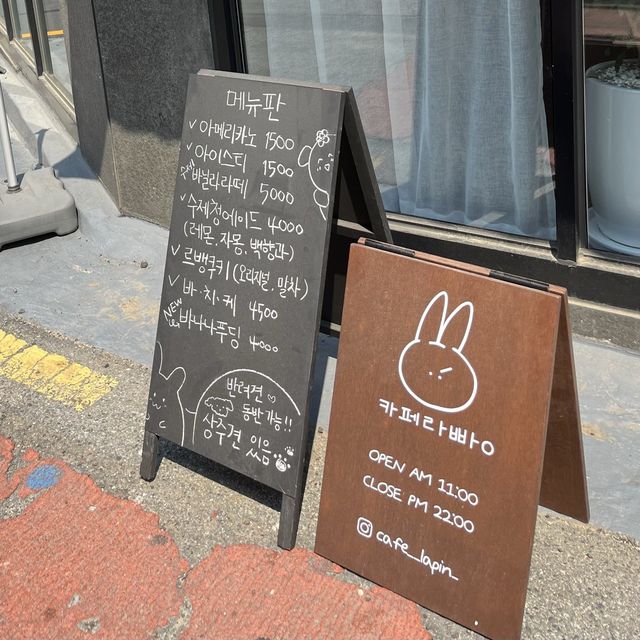 메뉴판
✓ 아메리카노 1500
✓ 아이스티 1500
바닐라라떼 5000
✓ 수제청에이드 4000
(레몬, 자몽, 백향과)
✓ 르뱅쿠키 (오리지널, 말차)
✓ 바·치·케 4500
NEW
바나나푸딩 4000
반려견
동반가능!!
상주견 있음
카페라빠
OPEN AM 11:00
CLOSE PM 22:00
cafe_lapin_